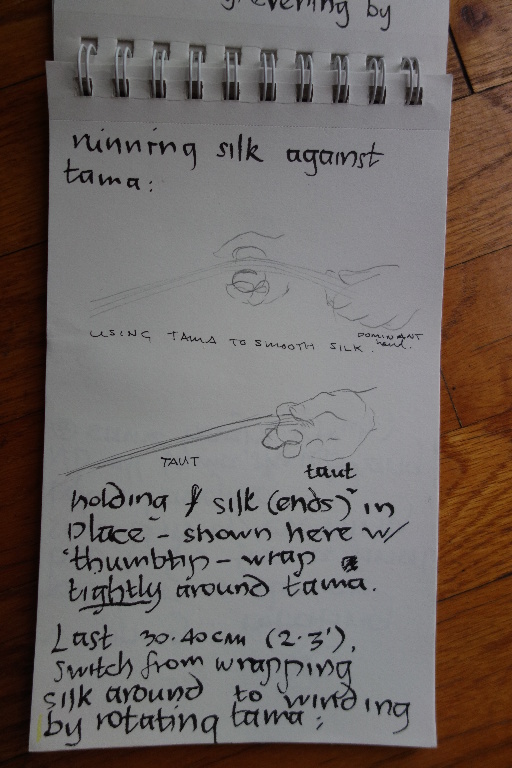 evening by
running silk against
tama:
USING TAMA TO SMOOTH SILK.
DOMINANT
hand.
TAUT
taut
holding silk (ends) in
place - shown here w/
thumbtip - wrap
tightly around tama.
Last 30-40cm (2-3'),
switch from wrapping
silk around to winding
by rotating tama: